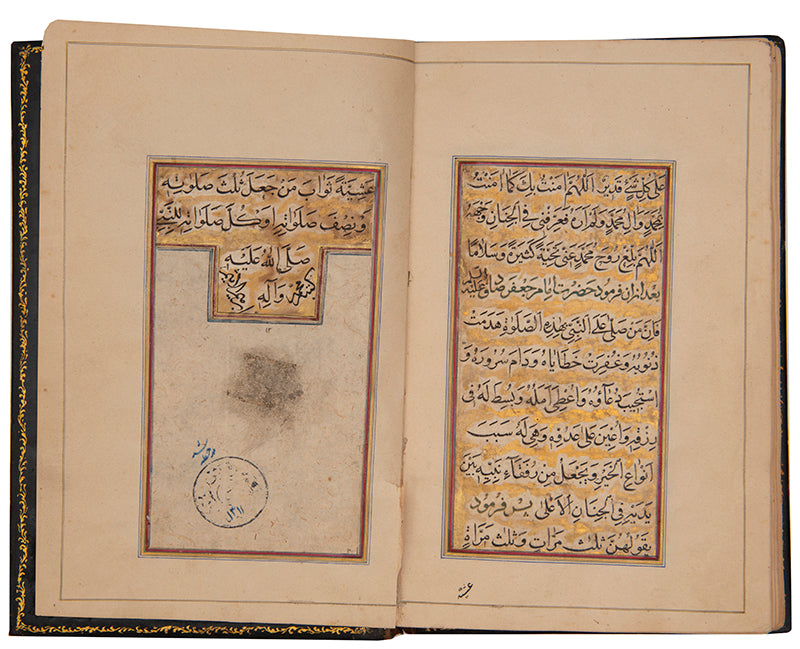 علی کل شیء قدیر اللهم امنت بک کما امنت
بمحمد وال محمد ولم اره فعرفنی فی الجنان وجهه
اللهم بلغ روح محمد عنی تحیة کثیرة وسلاما
بعد ازان فرمود حضرت امام جعفر صادق علیه
فان من صلی علی النبی بهذه الصلوة هدمت
ذنوبه وغفرت خطایاه ودام سروره و
استجیب دعاؤه واعطی امله وبسط له فی
رزقه واعین علی عدوه وهی له سبب
انواع الخیر ویجعل من رفقاء نبیه بین
یدیه فی الجنان الاعلی پس فرمود
یقولهن ثلث مرات وثلث مراة
عشیة
عشیة ثواب من جعل ثلث صلوته
ونصف صلواته او کل صلواته للنبی
صلی الله علیه
واله